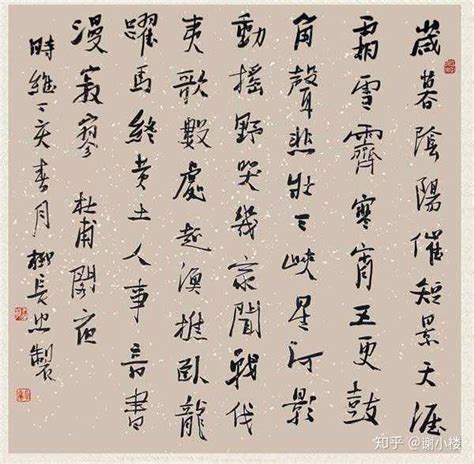 歲暮陰陽催短景天涯
霜雪霽寒宵五更鼓
角聲悲壯三峽星河影
動搖野哭幾家聞戰伐
夷歌數處起漁樵臥龍
躍馬終黃土人事音書
漫寂寥 杜甫閣夜
時維丁亥春月柳長忠製
知乎 @谢小楼